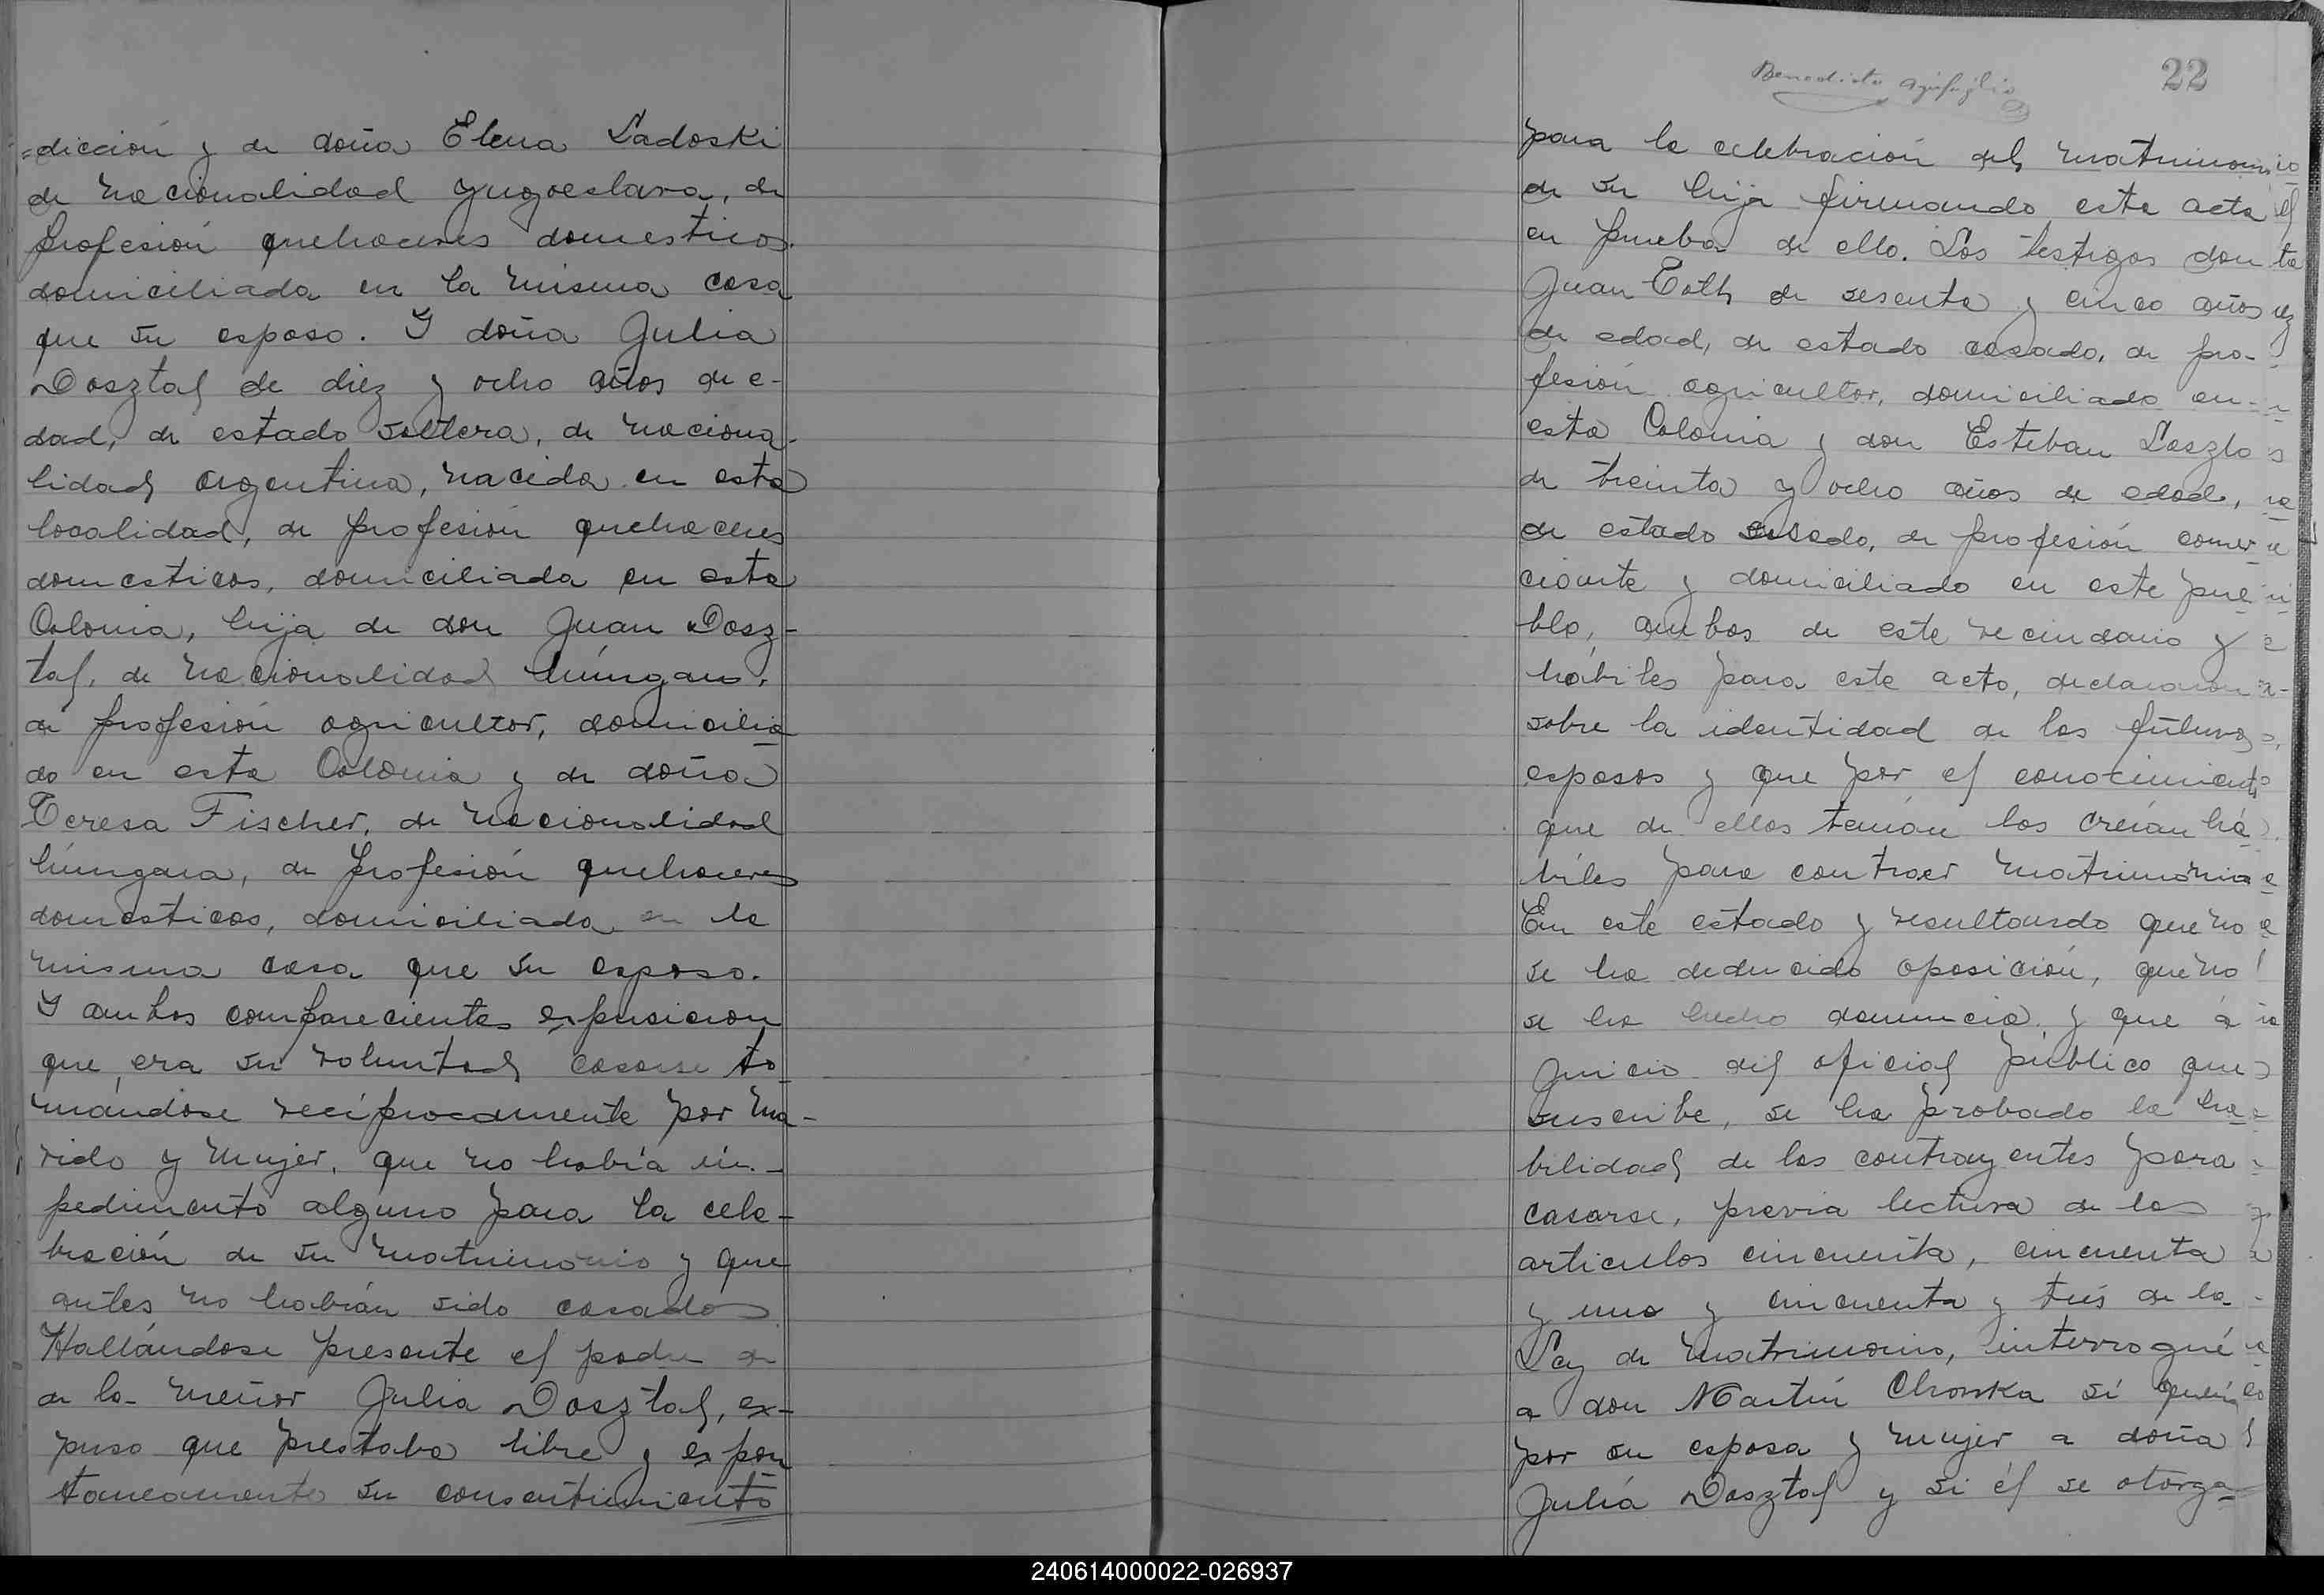 =dicción y de doña Elena Ladoski
de nacionalidad yugoeslava, de
profesión quehaceres domesticos.
domiciliada en la misma casa
que su esposo. Y doña Julia
Dosztal de diez y ocho años de e-
dad, de estado soltera, de naciona-
lidad argentina, nacida en esta
localidad, de profesión quehaceres
domesticos, domiciliada en esta
Colonia, hija de don Juan Dosz-
tal, de nacionalidad húngaro,
de profesión agricultor, domicilia
do en esta Colonia y de doña
Teresa Fischer, de nacionalidad
húngara, de profesión quehaceres
domesticos, domiciliada en la
misma casa que su esposo.
Y ambos comparecientes expusieron
que era su voluntad casarse to
mándose recíprocamente por ma-
rido y mujer, que no había im-
pedimento alguno para la cele-
bración de su matrimonio y que
antes no habían sido casados
Hallándose presente el padre de
de la menor Julia Dosztal, ex-
puso que prestaba libre y espon
taneamente su consentimiento
22
Benedicto
para la celebración del matrimonio
de su hija firmando este acta
en prueba de ello. Los testigos don
Juan Toth de sesenta y cinco años
de edad, de estado casado, de pro-
fesión agricultor, domiciliado en
esta Colonia y don Esteban Laszlo
de treinta y ocho años de edad,
de estado casado, de profesión comer
ciante y domiciliado en este pue
blo, ambos de este vecindario y
hábiles para este acto, declararon
sobre la identidad de los futuros
esposos y que por el conocimiento
que de ellos tenían los creían há
biles para contraer matrimonio
En este estado y resultando que no
se ha deducido oposición, que no
se ha hecho denuncia, y que a
juicio del oficial público que
suscribe, se ha probado la ha
bilidad de los contrayentes para
casarse, previa lectura de los
articulos cincuenta, cincuenta
y uno y cincuenta y trés de la
Ley de matrimonio, interrogué
a don Martín Chovska si quería
por su esposa y mujer a doña
Julia Dosztal y si él se otorga-
240614000022-026937